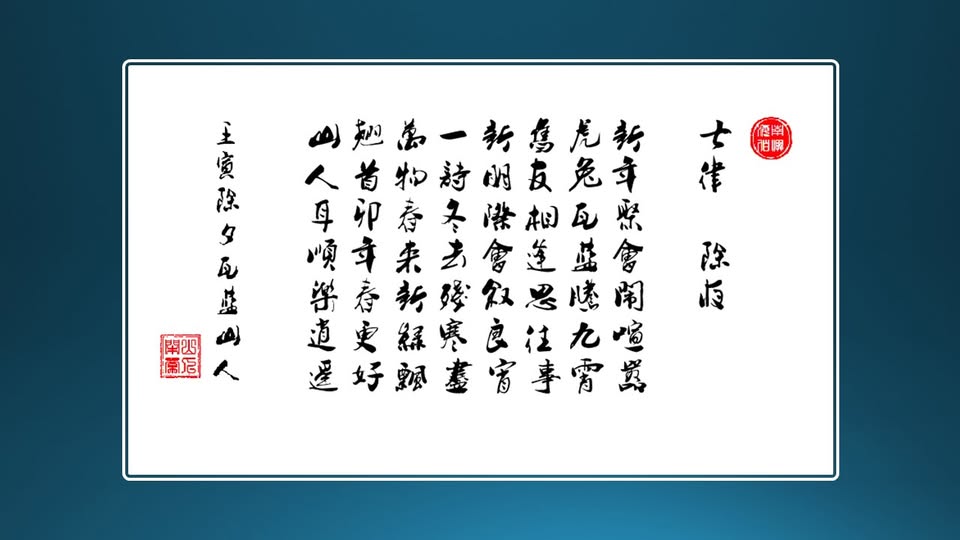 七律 除夜
新年聚會鬧喧囂
虎兔瓦藍騰九霄
舊友相逢思往事
新朋際會敘良宵
一詩冬去殘寒盡
萬物春来新綠飄
翹首卯年春更好
山人耳順樂逍遥
壬寅除夕瓦藍山人